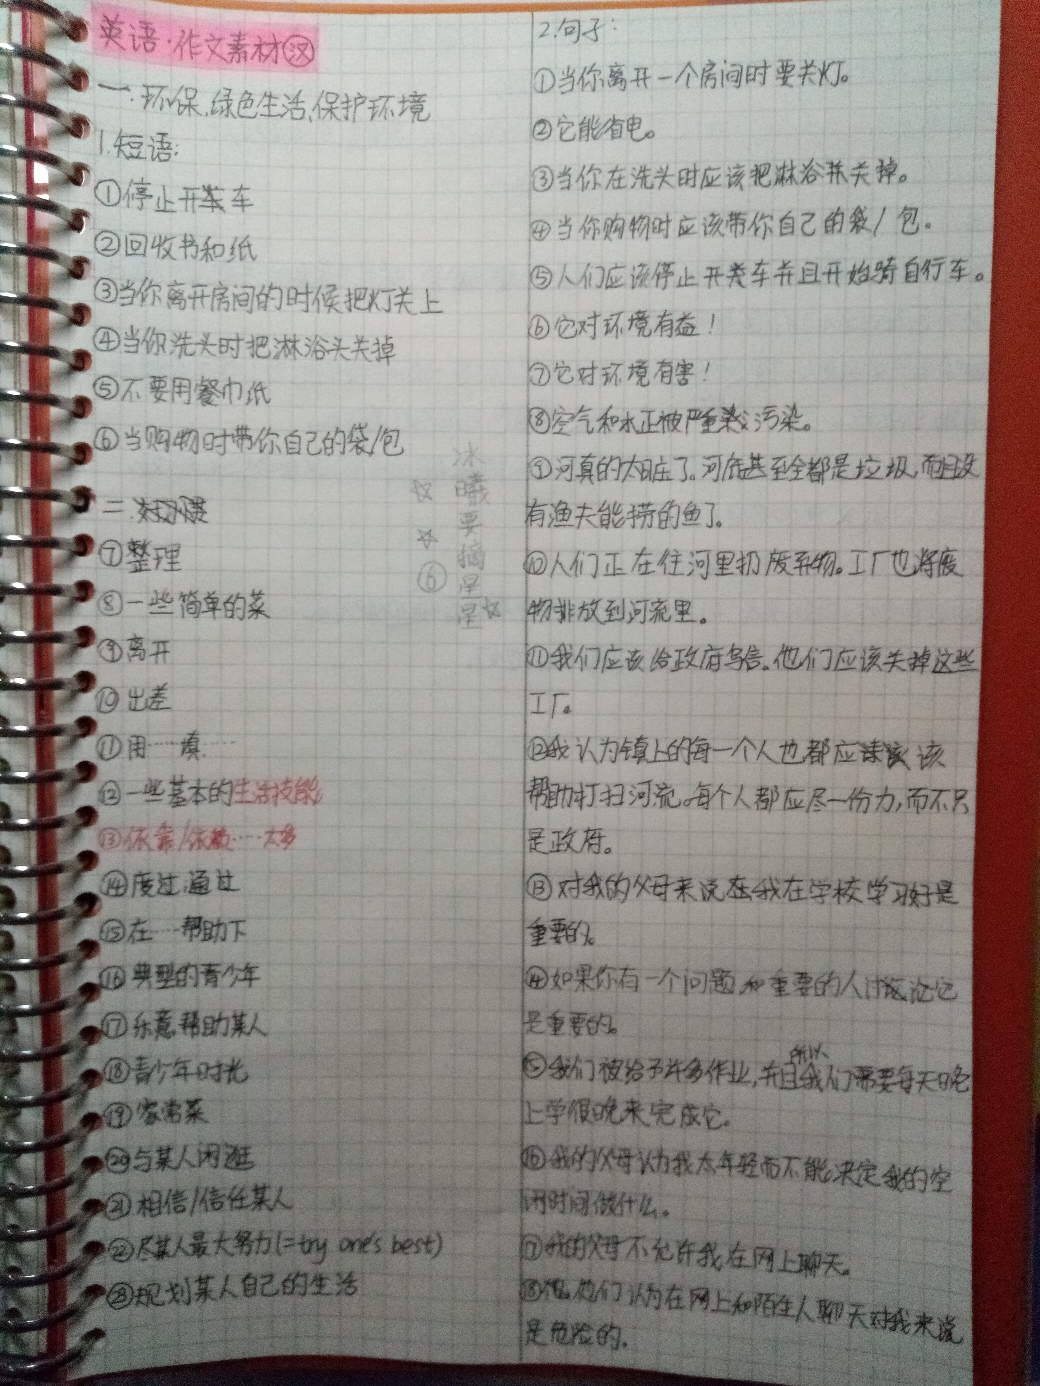 英语·作文素材(汉)
一.环保,绿色生活,保护环境
1.短语:
①停止开车
②回收书和纸
③当你离开房间的时候把灯关上
④当你洗头时把淋浴头关掉
⑤不要用餐巾纸
⑥当购物时带你自己的袋/包
二.
⑦整理
⑧一些简单的菜
⑨离开
⑩出差
⑪用……填……
⑫一些基本的生活技能
⑬依靠/依赖……太多
⑭度过,通过
⑮在……帮助下
⑯典型的青少年
⑰乐意帮助某人
⑱青少年时光
⑲家常菜
⑳与某人闲逛
㉑相信/信任某人
㉒尽某人最大努力(=try one's best)
㉓规划某人自己的生活
冰曦要摘星星
⑥
2.句子:
①当你离开一个房间时要关灯。
②它能省电。
③当你在洗头时应该把淋浴关掉。
④当你购物时应该带你自己的袋/包.
⑤人们应该停止开车并且开始骑自行车。
⑥它对环境有益!
⑦它对环境有害!
⑧空气和水正被严重污染。
⑨河真的太脏了。河底甚至全都是垃圾,而且没
有渔夫能捞的鱼了。
⑩人们正在往河里扔废弃物。工厂也将废
物排放到河流里。
⑪我们应该给政府写信。他们应该关掉这些
工厂。
⑫我认为镇上的每一个人也都应该
帮助打扫河流。每个人都应尽一份力,而不只
是政府。
⑬对我的父母来说我在学校学习好是
重要的。
⑭如果你有一个问题,和重要的人讨论它
是重要的。
⑮我们被给予许多作业,所以我们需要每天晚
上学很晚来完成它。
⑯我的父母认为我太年轻而不能决定我的空
闲时间做什么。
⑰我的父母不允许我在网上聊天。
⑱他们认为在网上和陌生人聊天对我来说
是危险的.